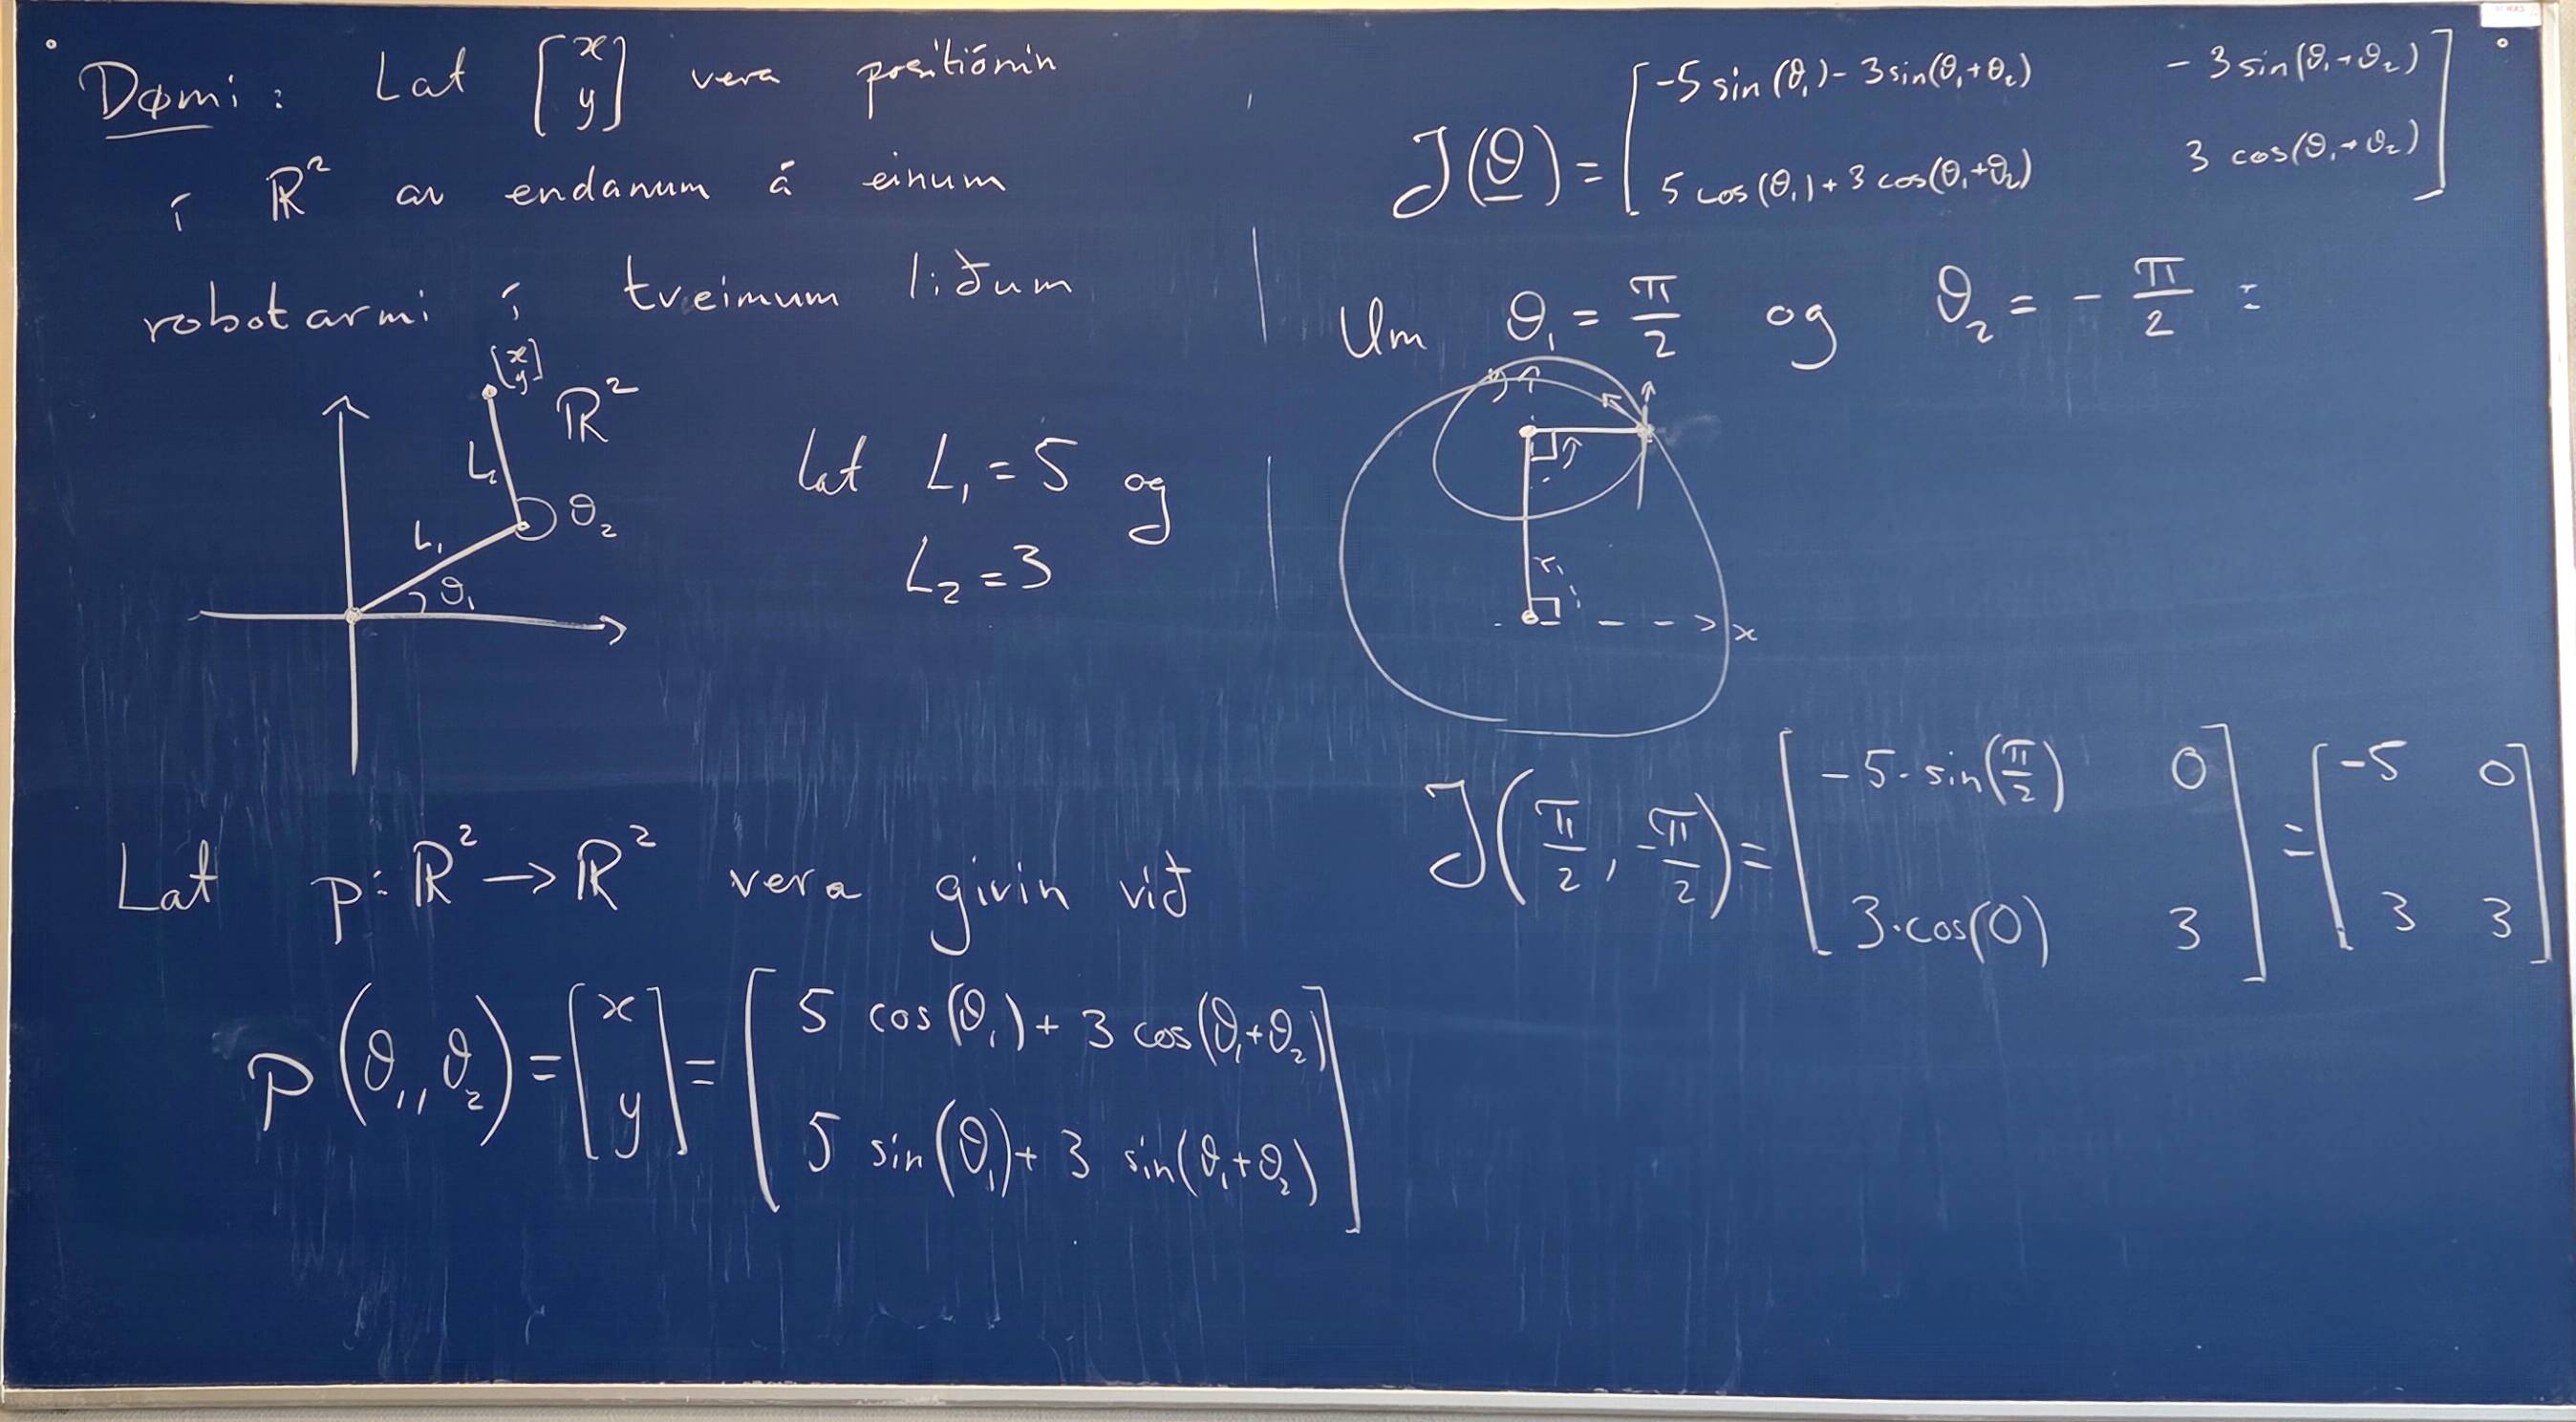 Dømi: Lat [x y] vera positiónin
í ℝ² av endanum á einum
robotarmi í tveimum liðum
[x y]
ℝ²
L₂
θ₂
L₁
θ₁
Lat L₁ = 5 og
L₂ = 3
Lat p: ℝ² → ℝ² vera givin við
p(θ₁, θ₂) = [x y] = [5 cos(θ₁) + 3 cos(θ₁+θ₂)
5 sin(θ₁) + 3 sin(θ₁+θ₂)]
J(θ) = [-5 sin(θ₁) - 3 sin(θ₁+θ₂) -3 sin(θ₁+θ₂)
5 cos(θ₁) + 3 cos(θ₁+θ₂) 3 cos(θ₁+θ₂)]
Um θ₁ = π/2 og θ₂ = -π/2 :
x
J(π/2, -π/2) = [-5·sin(π/2) 0
3·cos(0) 3] = [-5 0
3 3]